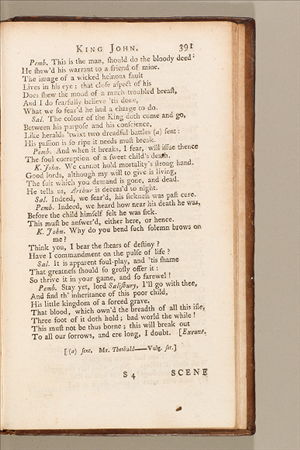 KING JOHN. 391
Pemb. This is the man, should do the bloody deed:
He shew'd his warrant to a friend of mine.
The image of a wicked heinous fault
Lives in his eye; that close aspect of his
Does shew the mood of a much troubled breast,
And I do fearfully believe 'tis done,
What we so fear'd he had a charge to do.
Sal. The colour of the King doth come and go,
Between his purpose and his conscience,
Like heralds 'twixt two dreadful battles (a) sent:
His passion is so ripe it needs must break.
Pemb. And when it breaks, I fear, will issue thence
The foul corruption of a sweet child's death.
K. John. We cannot hold mortality's strong hand.
Good lords, although my will to give is living,
The suit which you demand is gone, and dead.
He tells us, Arthur is deceas'd to night.
Sal. Indeed, we fear'd, his sickness was past cure.
Pemb. Indeed, we heard how near his death he was,
Before the child himself felt he was sick.
This must be answer'd, either here, or hence.
K. John. Why do you bend such solemn brows on
me?
Think you, I bear the shears of destiny?
Have I commandment on the pulse of life?
Sal. It is apparent foul-play, and 'tis shame
That greatness should so grosly offer it:
So thrive it in your game, and so farewel!
Pemb. Stay yet, lord Salisbury, I'll go with thee,
And find th' inheritance of this poor child,
His little kingdom of a forced grave.
That blood, which own'd the breadth of all this isle,
Three foot of it doth hold; bad world the while!
This must not be thus borne; this will break out
To all our sorrows, and ere long, I doubt. [Exeunt.
[(a) sent, Mr. Theobald——Vulg. set.]
S 4 SCENE